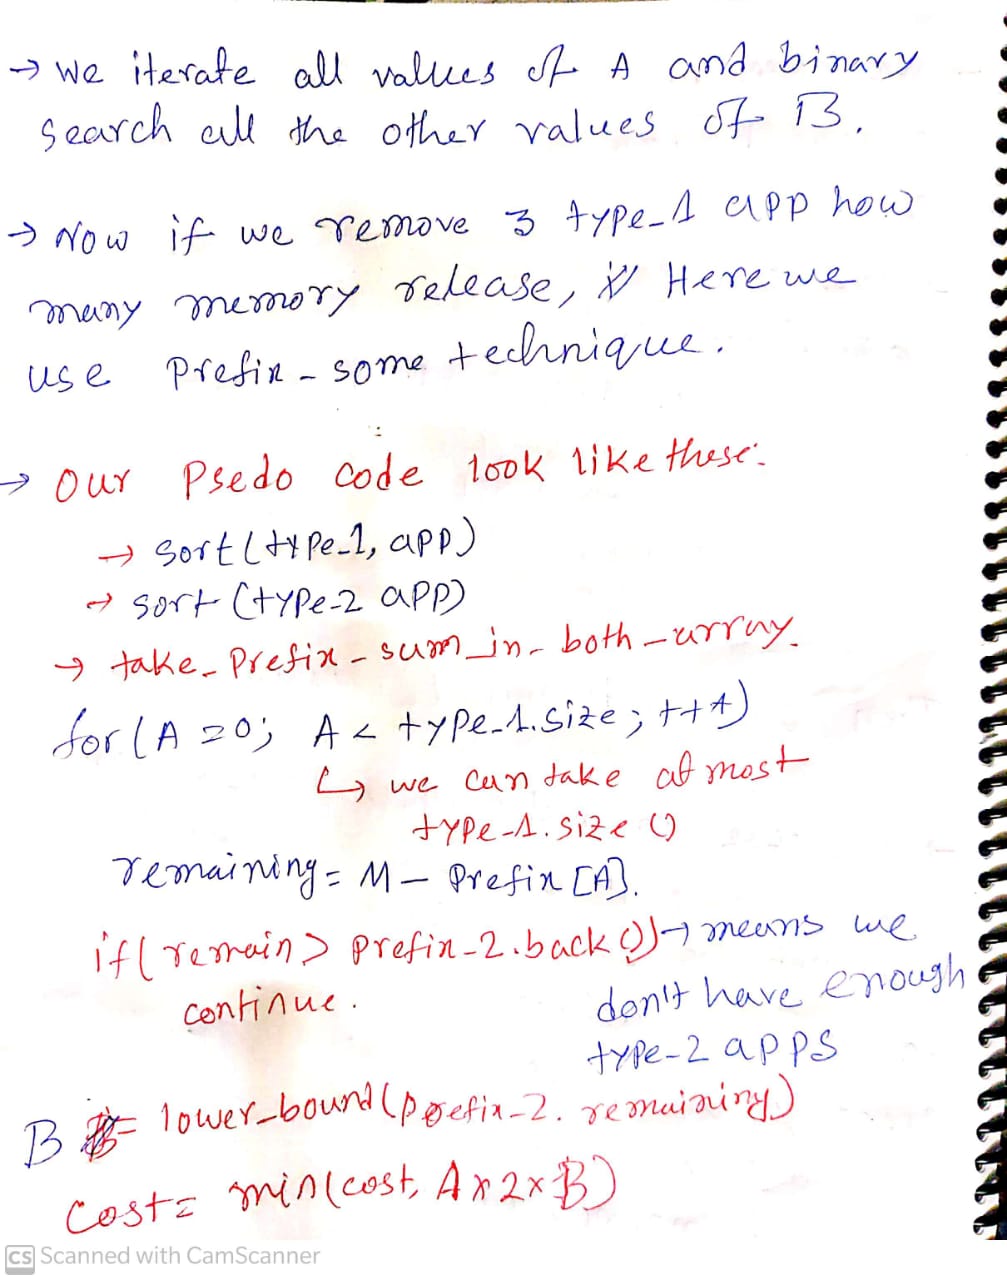 → We iterate all values of A and binary
search all the other values of B.
→ Now if we remove 3 type_1 app how
many memory release, Here we
use Prefix - some technique.
→ Our Psedo code look like these:
→ sort(type_1, app)
→ sort (type-2 app)
→ take_Prefix-sum_in_both_array.
for(A=0; A < type_1.size; ++A)
↳ we can take at most
type_1.size()
remaining = M - Prefix[A].
if(remain > prefix_2.back()) → means we
continue.
don't have enough
type-2 apps
B = lower_bound(prefix_2. remaining)
Cost = min(cost, A x 2 x B)
CS Scanned with CamScanner